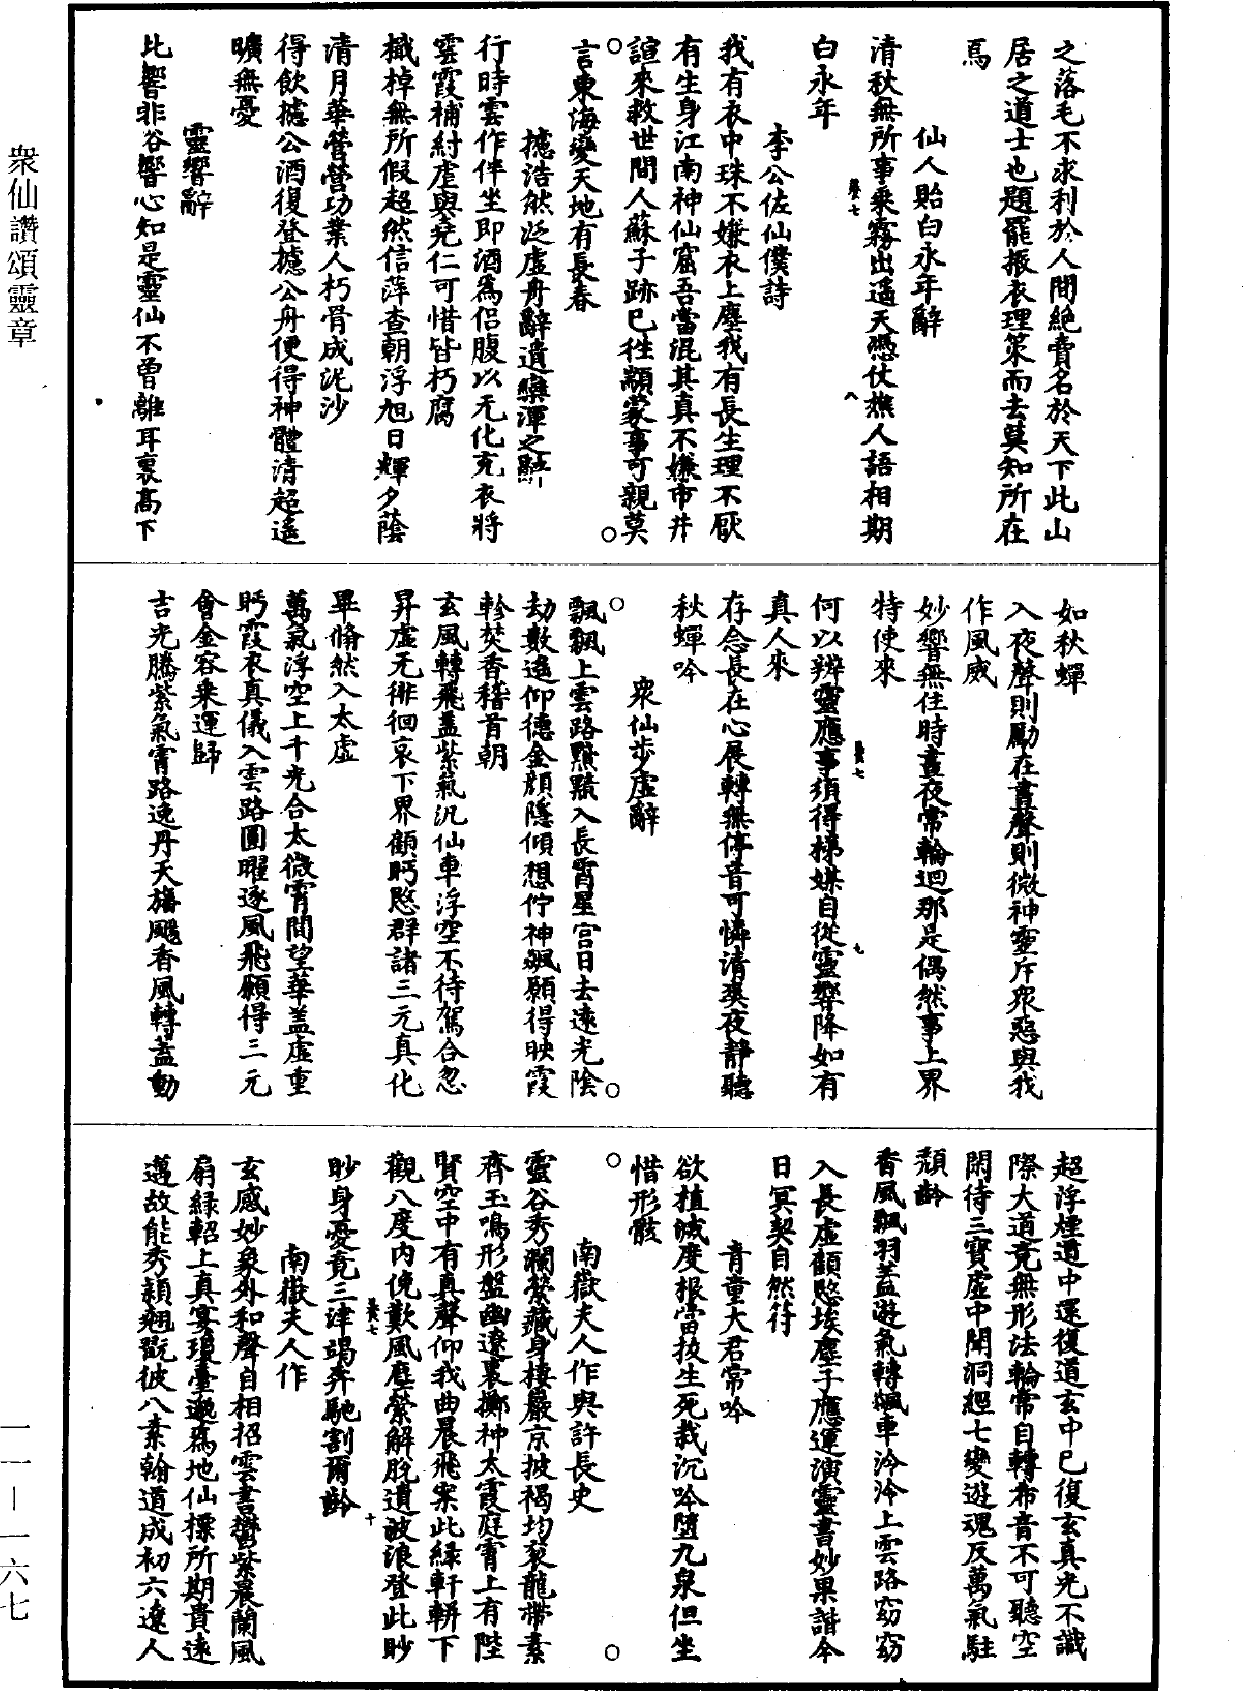 眾仙讚頌靈章
一一—一六七
之落毛不求利於人間絶賣名於天下此山
居之道士也題罷振衣理策而去莫知所在
焉
仙人貽白永年辭
清秋無所事乘霧出遥天憑仗樵人語相期
白永年
李公佐仙僕詩
我有衣中珠不嫌衣上塵我有長生理不厭
有生身江南神仙窟吾當混其真不嫌市井
諠來救世間人蘇子跡已往顓蒙事可親莫
言東海變天地有長春
攄浩然泛虛舟辭遺欒潭之辭
行時雲作伴坐即酒爲侣腹以无化充衣將
雲霞補紂虐與堯仁可惜皆朽腐
檝棹無所假超然信萍查朝浮旭日輝夕蔭
清月華營營功業人朽骨成泥沙
得飲攄公酒復登攄公舟便得神體清超遥
曠無憂
靈響辭
此響非谷響心知是靈仙不曾離耳裏高下
如秋蟬
入夜聲則厲在晝聲則微神靈斥眾惡與我
作風威
妙響無住時晝夜常輪迴那是偶然事上界
特使來
何以辨靈應事須得梯媒自從靈響降如有
真人來
存念長在心展轉無停音可憐清爽夜靜聽
秋蟬吟
眾仙步虛辭
飄飄上雲路黯黯入長霄星宫日去遠光陰
劫數遥仰德金顔隱傾想佇神飆願得映霞
軫焚香稽首朝
玄風轉飛蓋紫氣汎仙車浮空不待駕合忽
昇虛无徘徊哀下界顧眄愍群諸三元真化
畢翛然入太虛
萬氣浮空上千光合太微霄間望華蓋虛重
眄霞衣真儀入雲路圓曜逐風飛願得三元
會金容乘運歸
吉光騰紫氣霄路逸丹天旛颺香風轉蓋動
超浮煙道中還復道玄中已復玄真光不識
際大道竟無形法輪常自轉布音不可聽空
閑待三寶虛中聞洞經七變遊魂反萬氣駐
頹齡
香風飄羽蓋遊氣轉飆車泠泠上雲路窈窈
入長虛顧愍埃塵子應運演靈書妙果諧今
日冥契自然符
青童大君常吟
欲植滅度根當拔生死栽沉吟墮九泉但坐
惜形骸
南嶽夫人作與許長史
靈谷秀瀾縈藏身棲巖京披褐均衮龍帶素
齊玉鳴形盤幽遼裏擲神太霞庭霄上有陛
賢空中有真聲仰我曲晨飛案此緑軒軿下
觀八度内俛歎風塵縈解脫遺波浪登此眇
眇身憂竟三津竭奔馳割爾齡
南嶽夫人作
玄感妙象外和聲自相招雲書鬱紫晨蘭風
扇緑軺上真宴瓊臺邈爲地仙標所期貴遠
邁故能秀穎翹翫彼八素翰道成初六遼人